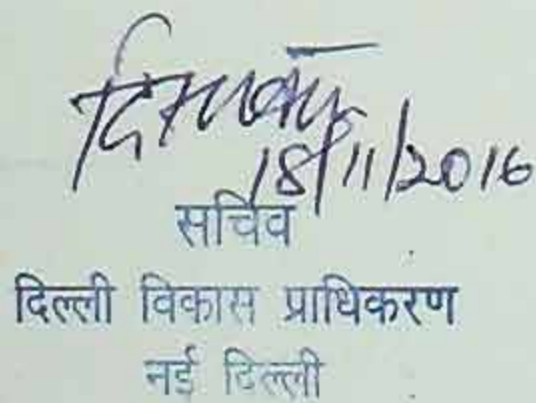 18/11/2016
सचिव
दिल्ली विकास प्राधिकरण
नई दिल्ली